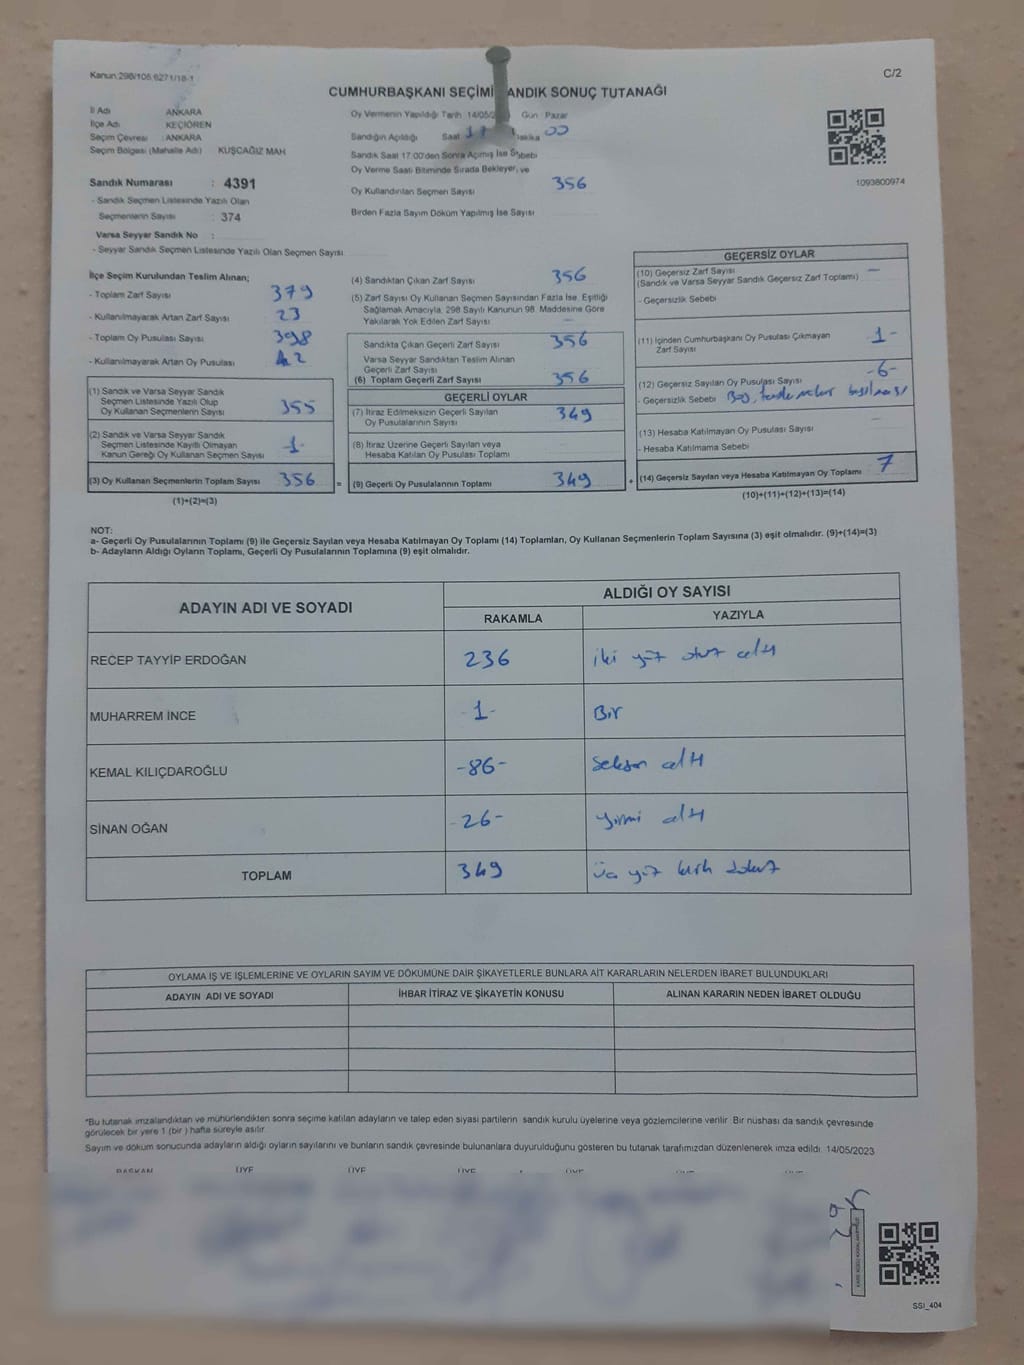 Kanun 298/105,6271/18-1
C/2
CUMHURBAŞKANI SEÇİMİ SANDIK SONUÇ TUTANAĞI
İl Adı ANKARA
İlçe Adı KEÇİÖREN
Seçim Çevresi : ANKARA
Seçim Bölgesi (Mahalle Adı) KUŞCAĞIZ MAH
Sandık Numarası : 4391
- Sandık Seçmen Listesinde Yazılı Olan
Seçmenlerin Sayısı : 374
Varsa Seyyar Sandık No :
- Seyyar Sandık Seçmen Listesinde Yazılı Olan Seçmen Sayısı
Oy Vermenin Yapıldığı Tarih 14/05/2 Gün Pazar
Sandığın Açıldığı Saat 17 Dakika 00
Sandık Saat 17.00'den Sonra Açımış İse Sebebi
Oy Verme Saati Bitiminde Sırada Bekleyen ve
Oy Kullandırılan Seçmen Sayısı 356
Birden Fazla Sayım Döküm Yapılmış İse Sayısı
1093800974
İlçe Seçim Kurulundan Teslim Alınan;
- Toplam Zarf Sayısı 379
- Kullanılmayarak Artan Zarf Sayısı 23
- Toplam Oy Pusulası Sayısı 398
- Kullanılmayarak Artan Oy Pusulası 42
(1) Sandık ve Varsa Seyyar Sandık
Seçmen Listesinde Yazılı Olup
Oy Kullanan Seçmenlerin Sayısı 355
(2) Sandık ve Varsa Seyyar Sandık
Seçmen Listesinde Kayıtlı Olmayan
Kanun Gereği Oy Kullanan Seçmen Sayısı -1-
(3) Oy Kullanan Seçmenlerin Toplam Sayısı 356 =
(1)+(2)=(3)
(4) Sandıktan Çıkan Zarf Sayısı 356
(5) Zarf Sayısı Oy Kullanan Seçmen Sayısından Fazla İse, Eşitliği
Sağlamak Amacıyla, 298 Sayılı Kanunun 98. Maddesine Göre
Yakılarak Yok Edilen Zarf Sayısı —
Sandıkta Çıkan Geçerli Zarf Sayısı 356
Varsa Seyyar Sandıktan Teslim Alınan
Geçerli Zarf Sayısı
(6) Toplam Geçerli Zarf Sayısı 356
GEÇERLİ OYLAR
(7) İtiraz Edilmeksizin Geçerli Sayılan
Oy Pusulalarının Sayısı 349
(8) İtiraz Üzerine Geçerli Sayılan veya
Hesaba Katılan Oy Pusulası Toplamı
(9) Geçerli Oy Pusulalarının Toplamı 349 +
GEÇERSİZ OYLAR
(10) Geçersiz Zarf Sayısı —
(Sandık ve Varsa Seyyar Sandık Geçersiz Zarf Toplamı)
- Geçersizlik Sebebi
(11) İçinden Cumhurbaşkanı Oy Pusulası Çıkmayan
Zarf Sayısı 1-
(12) Geçersiz Sayılan Oy Pusulası Sayısı -6-
- Geçersizlik Sebebi Boş, basılması
(13) Hesaba Katılmayan Oy Pusulası Sayısı
- Hesaba Katılmama Sebebi
(14) Geçersiz Sayılan veya Hesaba Katılmayan Oy Toplamı 7
(10)+(11)+(12)+(13)=(14)
NOT:
a- Geçerli Oy Pusulalarının Toplamı (9) ile Geçersiz Sayılan veya Hesaba Katılmayan Oy Toplamı (14) Toplamları, Oy Kullanan Seçmenlerin Toplam Sayısına (3) eşit olmalıdır. (9)+(14)=(3)
b- Adayların Aldığı Oyların Toplamı, Geçerli Oy Pusulalarının Toplamına (9) eşit olmalıdır.
ADAYIN ADI VE SOYADI
ALDIĞI OY SAYISI
RAKAMLA YAZIYLA
RECEP TAYYİP ERDOĞAN 236 iki yüz otuz altı
MUHARREM İNCE -1- Bir
KEMAL KILIÇDAROĞLU -86- seksen altı
SİNAN OĞAN -26- yirmi altı
TOPLAM 349 üç yüz kırk dokuz
OYLAMA İŞ VE İŞLEMLERİNE VE OYLARIN SAYIM VE DÖKÜMÜNE DAİR ŞİKAYETLERLE BUNLARA AİT KARARLARIN NELERDEN İBARET BULUNDUKLARI
ADAYIN ADI VE SOYADI İHBAR İTİRAZ VE ŞİKAYETİN KONUSU ALINAN KARARIN NEDEN İBARET OLDUĞU
*Bu tutanak imzalandıktan ve mühürlendikten sonra seçime katılan adayların ve talep eden siyasi partilerin sandık kurulu üyelerine veya gözlemcilerine verilir. Bir nüshası da sandık çevresinde
görülecek bir yere 1 (bir ) hafta süreyle asılır.
Sayım ve döküm sonucunda adayların aldığı oyların sayılarını ve bunların sandık çevresinde bulunanlara duyurulduğunu gösteren bu tutanak tarafımızdan düzenlenerek imza edildi. 14/05/2023
BAŞKAN ÜYE ÜYE ÜYE ÜYE
SSI_404